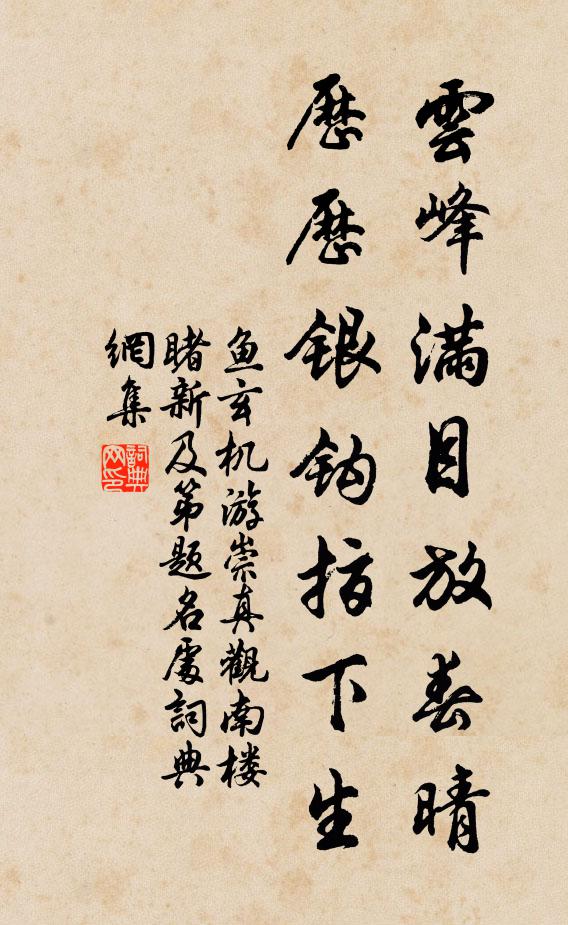 雲峰滿目放春晴
歷歷銀鈎指下生
鱼玄机游崇真觀南楼
睹新及第題名處詞典
網集
詞典网印